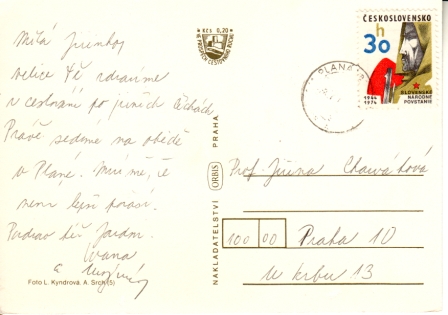 Milá Jiřinko,
velice Tě zdravíme
z cestování po jižních Čechách.
Právě sedíme na obědě
v Plané. Mrzí mě, že
není lepší počasí.
Pozdrav též
Ivana
a
Foto L. Kyndrová, A. Srch (5)
Kčs 0,20
NAKLADATELSTVÍ ORBIS PRAHA
PLANÁ
ČESKOSLOVENSKO
30 h
1944
1974
SLOVENSKÉ
NÁRODNÉ
POVSTANIE
Prof. Jiřina
100 00 Praha 10
U krbu 13